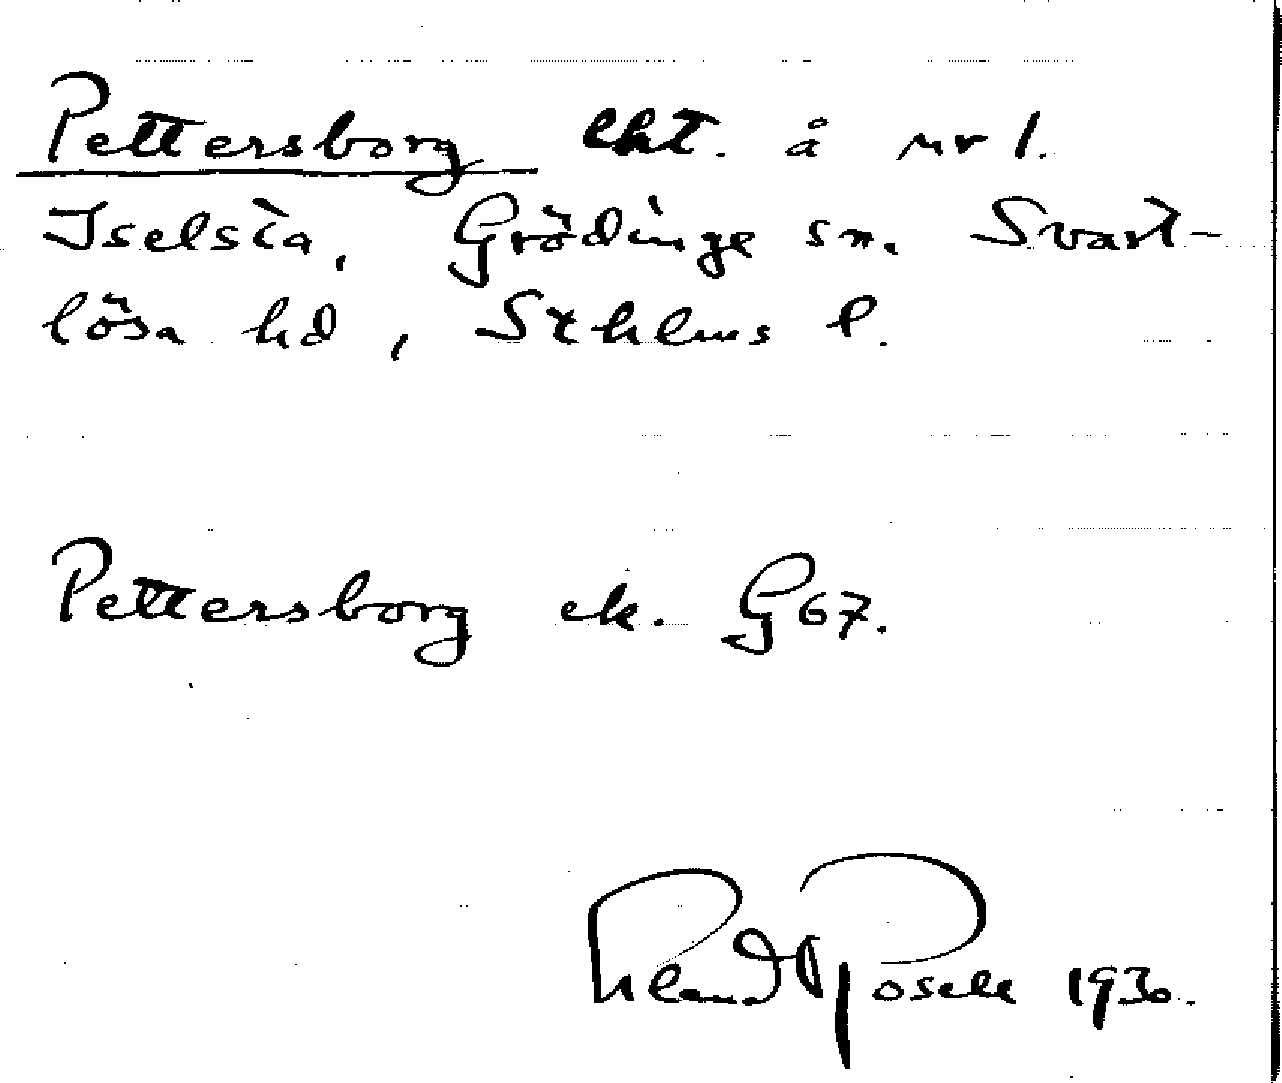 Pettersborg lht. å nr 1.
Iselsta, Grödinge sn. Svart-
lösa hd, Sthlms l.
Pettersborg ek. G 67.
Roland Rosell 1930.